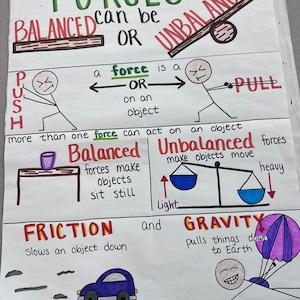 FORCES
can be
BALANCED OR UNBALANCED
PUSH
a force is a
PUSH OR PULL
on an
object
more than one force can act on an object
Balanced
forces make
objects
sit still
Unbalanced forces
make objects move
heavy
Light
FRICTION and GRAVITY
Slows an object down
pulls things down
to Earth